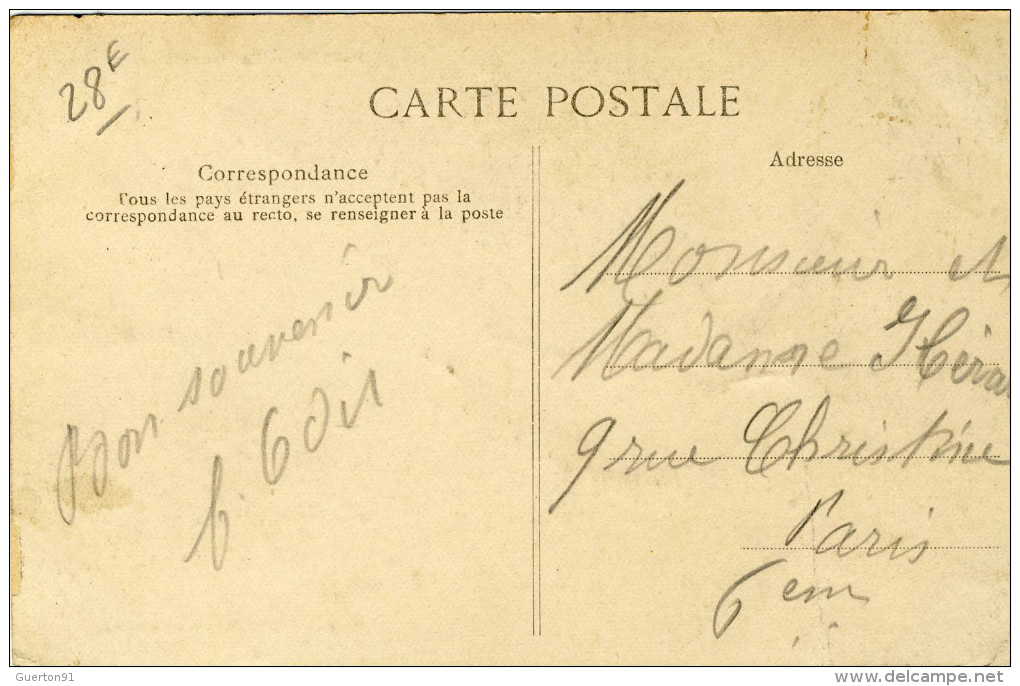 28 E
CARTE POSTALE
Correspondance
Tous les pays étrangers n'acceptent pas la
correspondance au recto, se renseigner à la poste
Adresse
Bon souvenir
Monsieur et
Madame
9 rue Christine
Paris
6em
Guerton91
delcampe.net